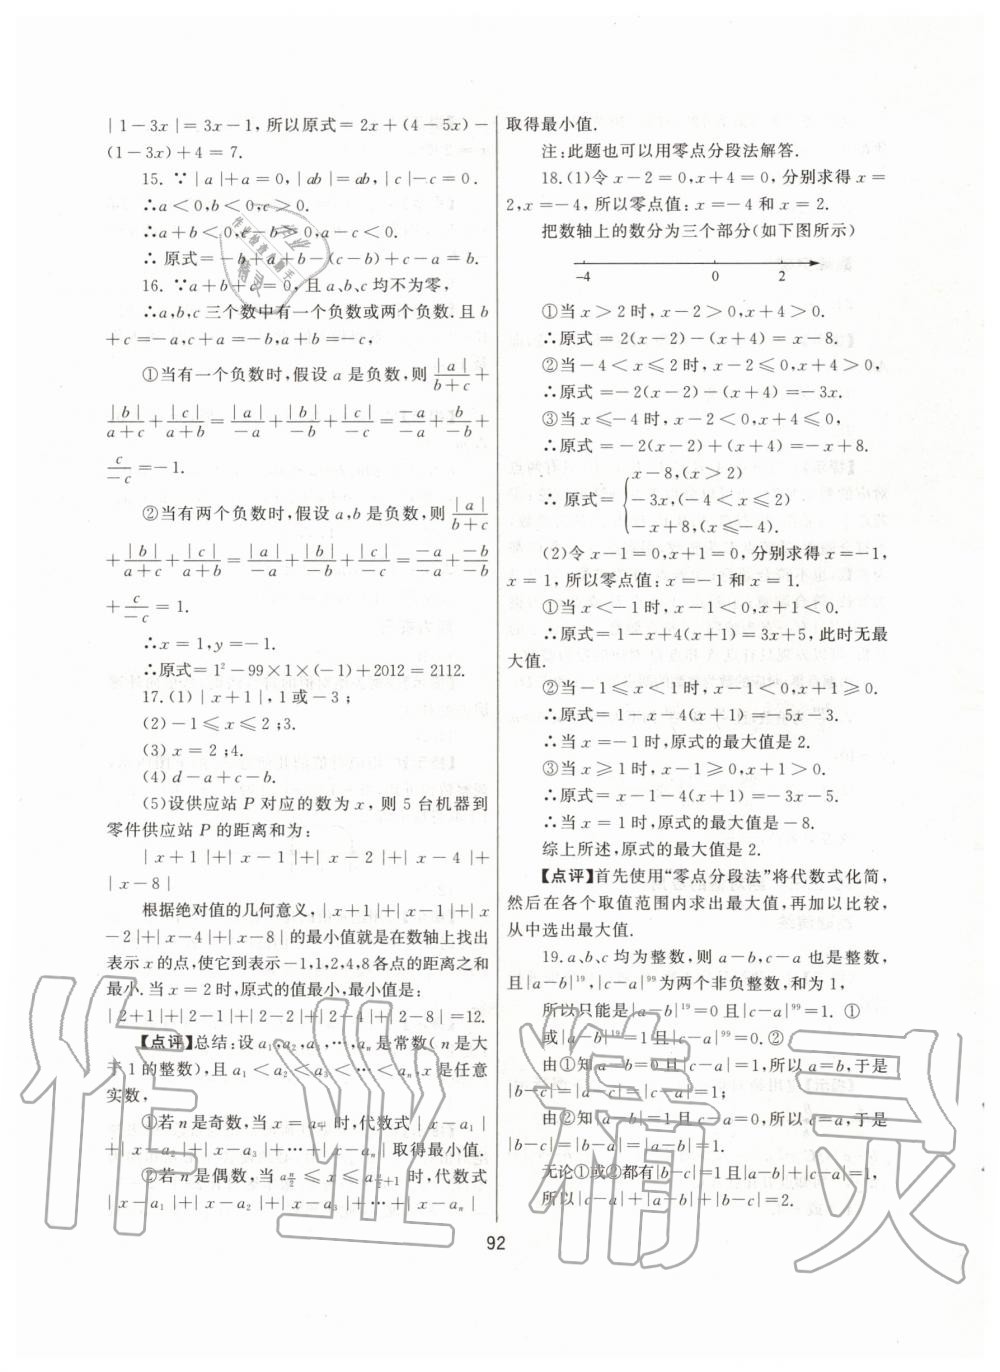 | 1－3x |＝3x－1, 所以原式＝2x＋(4－5x)－
(1－3x)＋4＝7.
15. ∵ | a |＋a＝0, | ab |＝ab, | c |－c＝0.
∴a＜0,b＜0,c＞0.
∴a＋b＜0,c－b＞0,a－c＜0.
∴ 原式＝－b＋a＋b－(c－b)＋c－a＝b.
16. ∵a＋b＋c＝0, 且 a、b、c 均不为零,
∴a,b,c 三个数中有一个负数或两个负数. 且 b
＋c＝－a,c＋a＝－b,a＋b＝－c,
①当有一个负数时, 假设 a 是负数, 则 |a|/(b＋c) ＋
|b|/(a＋c) ＋ |c|/(a＋b) ＝ |a|/(－a) ＋ |b|/(－b) ＋ |c|/(－c) ＝ －a/－a ＋ b/－b ＋
c/－c ＝－1.
②当有两个负数时, 假设 a,b 是负数, 则 |a|/(b＋c)
＋ |b|/(a＋c) ＋ |c|/(a＋b) ＝ |a|/(－a) ＋ |b|/(－b) ＋ |c|/(－c) ＝ －a/－a ＋ －b/－b
＋ c/－c ＝1.
∴x＝1,y＝－1.
∴原式＝1²－99×1×(－1)＋2012＝2112.
17. (1) | x＋1 |, 1 或－3;
(2)－1⩽x⩽2;3.
(3) x＝2;4.
(4) d－a＋c－b.
(5)设供应站 P 对应的数为 x, 则 5 台机器到
零件供应站 P 的距离和为:
| x＋1 |＋| x－1 |＋| x－2 |＋| x－4 |＋
| x－8 |
根据绝对值的几何意义, | x＋1|＋| x－1|＋| x
－2|＋| x－4|＋| x－8| 的最小值就是在数轴上找出
表示 x 的点, 使它到表示－1,1,2,4,8 各点的距离之和
最小. 当 x＝2 时, 原式的值最小, 最小值是:
| 2＋1|＋| 2－1|＋| 2－2|＋| 2－4|＋| 2－8|＝12.
【点评】总结: 设 a₁,a₂,a₃,⋯,aₙ 是常数( n 是大
于 1 的整数), 且 a₁＜a₂＜a₃＜⋯＜aₙ, x 是任意
实数,
①若 n 是奇数, 当 x＝a 时, 代数式 | x－a₁ |
＋| x－a₂ |＋| x－a₃ |＋⋯＋| x－aₙ | 取得最小值.
②若 n 是偶数, 当 a_{n/2}⩽x⩽a_{n/2＋1} 时, 代数式
| x－a₁ |＋| x－a₂ |＋| x－a₃ |＋⋯＋| x－aₙ |
取得最小值.
注: 此题也可以用零点分段法解答.
18. (1)令 x－2＝0,x＋4＝0, 分别求得 x＝
2,x＝－4, 所以零点值: x＝－4 和 x＝2.
把数轴上的数分为三个部分(如下图所示)
－4 0 2
①当 x＞2 时, x－2＞0,x＋4＞0.
∴原式＝2(x－2)－(x＋4)＝x－8.
②当－4＜x⩽2 时, x－2⩽0,x＋4＞0,
∴原式＝－2(x－2)－(x＋4)＝－3x.
③当 x⩽－4 时, x－2＜0,x＋4⩽0,
∴原式＝－2(x－2)＋(x＋4)＝－x＋8.
x－8,(x＞2)
∴ 原式＝{ －3x,(－4＜x⩽2)
－x＋8,(x⩽－4).
(2)令 x－1＝0,x＋1＝0, 分别求得 x＝－1,
x＝1, 所以零点值: x＝－1 和 x＝1.
①当 x＜－1 时, x－1＜0,x＋1＜0.
∴原式＝1－x＋4(x＋1)＝3x＋5, 此时无最
大值.
②当－1⩽x＜1 时, x－1＜0,x＋1⩾0.
∴原式＝1－x－4(x＋1)＝－5x－3.
∴当 x＝－1 时, 原式的最大值是 2.
③当 x⩾1 时, x－1⩾0,x＋1＞0.
∴原式＝x－1－4(x＋1)＝－3x－5.
∴当 x＝1 时, 原式的最大值是－8.
综上所述, 原式的最大值是 2.
【点评】首先使用“零点分段法”将代数式化简,
然后在各个取值范围内求出最大值, 再加以比较,
从中选出最大值.
19. a、b、c 均为整数, 则 a－b,c－a 也是整数,
且|a－b|¹⁹,|c－a|⁹⁹为两个非负整数, 和为 1,
所以只能是|a－b|¹⁹＝0 且|c－a|⁹⁹＝1. ①
或|a－b|¹⁹＝1 且|c－a|⁹⁹＝0. ②
由①知 a－b＝0 且|c－a|＝1, 所以 a＝b, 于是
|b－c|＝|a－c|＝|c－a|＝1;
由②知|a－b|＝1 且 c－a＝0, 所以 c＝a, 于是
|b－c|＝|b－a|＝|a－b|＝1.
无论①或②都有|b－c|＝1 且|a－b|＋|c－a|＝1,
所以|c－a|＋|a－b|＋|b－c|＝2.
92
作业精灵